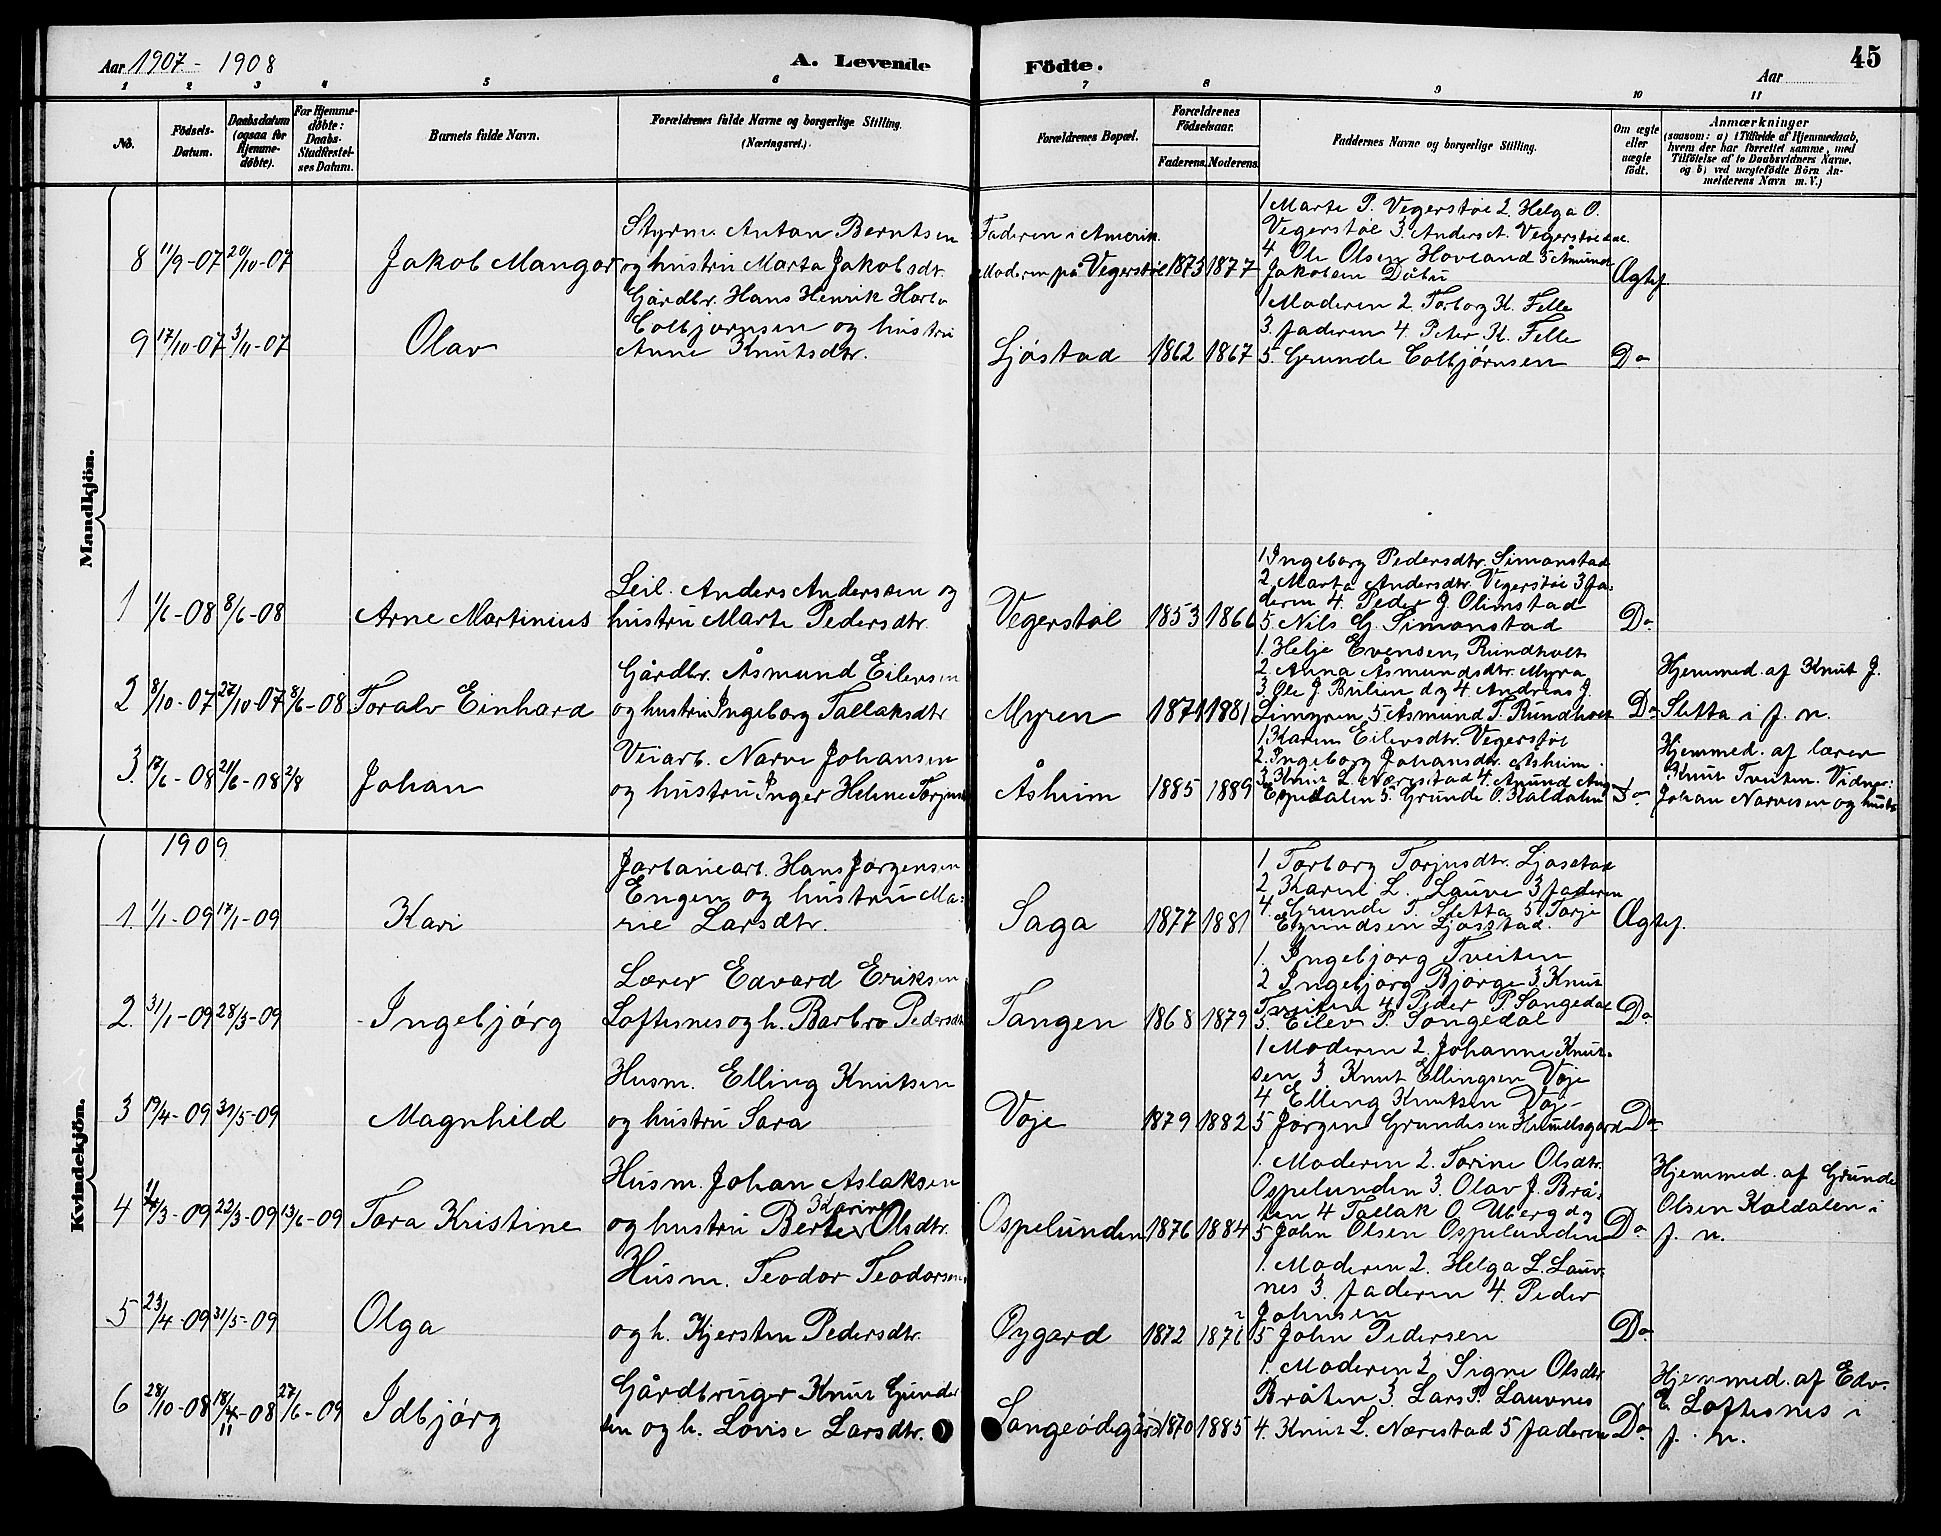 Aar 1907 - 1908
A. Levende Födte.
Aar
45
1 2 3 4 5 6 7 8 9 10 11
No.
Födsels-Datum.
Daabsdatum (ogsaa for Hjemme-döbte).
For Hjemme-döbte: Daabs-Stadfæstel-ses Datum.
Barnets fulde Navn.
Forældrenes fulde Navne og borgerlige Stilling. (Næringsvei.)
Forældrenes Bopæl.
Forældrenes Födselsaar.
Faderens. Moderens.
Faddernes Navne og borgerlige Stilling.
Om ægte eller uægte födt.
Anmærkninger
(saasom: a) i Tilfælde af Hjemmedaab,
hvem der har forrettet samme, med
Tilföielse af to Daabsvidners Navne.
og b) ved uægtefödte Börn An-
melderens Navn m. V.)
Mandkjön.
8 11/9-07 20/10-07 Jakob Mangor
Styrm. Anton Berntsen
og hustru Marta Jakobsdtr.
Faderen i Amerik.
Moderen på Vegerstöl 1873 1877
1 Marte P. Vegerstöl 2. Helga O.
Vegerstöl 3. Anders A. Vegerstöl
4 Ole Olsen Hovland 5 Amund
Jakobsen Dåli
Ægtef.
9 17/10-07 3/11-07 Olav
Gårdbr. Hans Henrik
Colbjørnsen og hustru
Anne Knutsdtr.
Ljøstad 1862 1867
1 Moderen 2 Torborg K. Felle
3. faderen 4 Peter K. Felle
5. Grunde Colbjørnsen
Do
1 1/6-08 8/6-08 Arne Martinius
Leil. Anders Andersen og
hustru Marte Pedersdtr.
Vegerstöl 1853 1866
1 Ingeborg Pedersdtr. Simonstad
2 Marta Andersdtr. Vegerstöl 3 fa-
deren 4. Peder J. Olimstad
5. Nils G. Simonstad
Do
2 8/10-07 27/10-07 8/6-08 Toralv Einhard
Gårdbr. Åsmund Eilevsen
og hustru Ingeborg Tallaksdtr
Myren 1871 1881
1. Helje Evensen Rundholt
2. Anna Åsmundsdtr. Myra
3. Ole J. Bulien dg 4. Andreas J.
Limyren 5 Åsmund T. Rundholt
Do
Hjemmed. af Knut J.
Sletta i f. n.
3. 17/6-08 21/6-08 2/8 Johan
Veiarb. Narve Johansen
og hustru Inger Helene
Åsheim 1885 1889
1. Karen Eilevsdtr. Vegerstöl
2. Ingeborg Johansdtr. Åsheim
3 Knut L. Næristad 4. Amund
Espedalen 5. Grunde O. Kaldalen
Do
Hjemmed. af lærer
Knut Tveiten. Vidner:
Johan Narvesen og hustr
Kvindekjön.
1909
1. 1/1-09 17/1-09 Kari
Hans Jørgensen
Engen og hustru Ma-
rie Larsdtr.
Saga 1877 1881
1. Torborg Torjusdtr. Ljøsstad
2. Karen L. Lauve 3 faderen
4. Grunde T. Sletta 5 Torje
Ljøsstad.
Ægtef.
2. 31/1-09 28/3-09 Ingebjørg
Lærer Edvard Eriksen
Loftesnes og h. Barbro Pedersdtr
Tangen 1868 1879
1. Ingebjørg Tveiten
2 Ingebjørg Bjørge 3. Knut
Tveiten 4 Peder P. Songedal
5. Eilev P. Songedal
Do
3 19/4-09 31/5-09 Magnhild
Husm. Elling Knutsen
og hustru Sara
Voje 1879 1882
1 Moderen 2. Johanne Knut-
sen 3. Knut Ellingsen Voje
4 Elling Knutsen Voje
5 Jørgen Grundesen
Do
4 11/3-09 22/3-09 13/6-09 Tora Kristine
Husm. Johan Aslaksen
og hustru Berte Karine Olsdtr.
Ospelunden 1876 1884
1. Moderen 2. Torine Olsdtr.
Ospelunden 3. Olav J. Brå-
ten 4 Tallak O. Uberg dg
5 John Olsen Ospelunden
Do
Hjemmed. af Grunde
Olsen Kaldalen i
f. n.
5 23/4-09 31/5-09 Olga
Husm. Teodor Teodorsen
og h. Kjersten Pedersdtr.
Oygard 1872 1876
1. Moderen 2. Helga L. Lauv-
nes 3. faderen 4. Peder
Johnsen
5 John Pedersen
Do
6 28/10-08 18/11-08 27/6-09 Idbjørg
Gårdbruger Knut Gunder
sen og h. Lovise Larsdtr.
Songeødegård 1870 1885
1. Moderen 2. Signe Olsdtr
Bråten 3. Lars P. Lauvnes
4. Knut L. Nærestad 5 faderen
Do
Hjemmed. af Edv.
E. Loftesnes i
f. n.